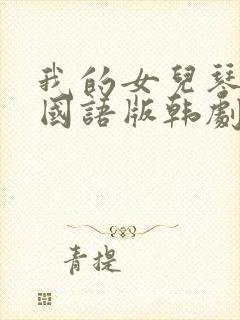 我的女兒琴
國語版韩劇
青提